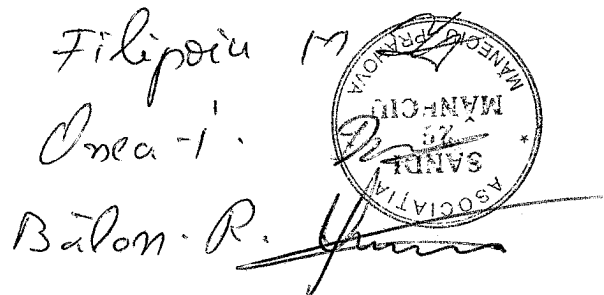 Filipoiu M
Onea - I.
Bălon. R.
ASOCIAȚIA
SANDI
MÂNECIU
MÂNECIU PRAHOVA